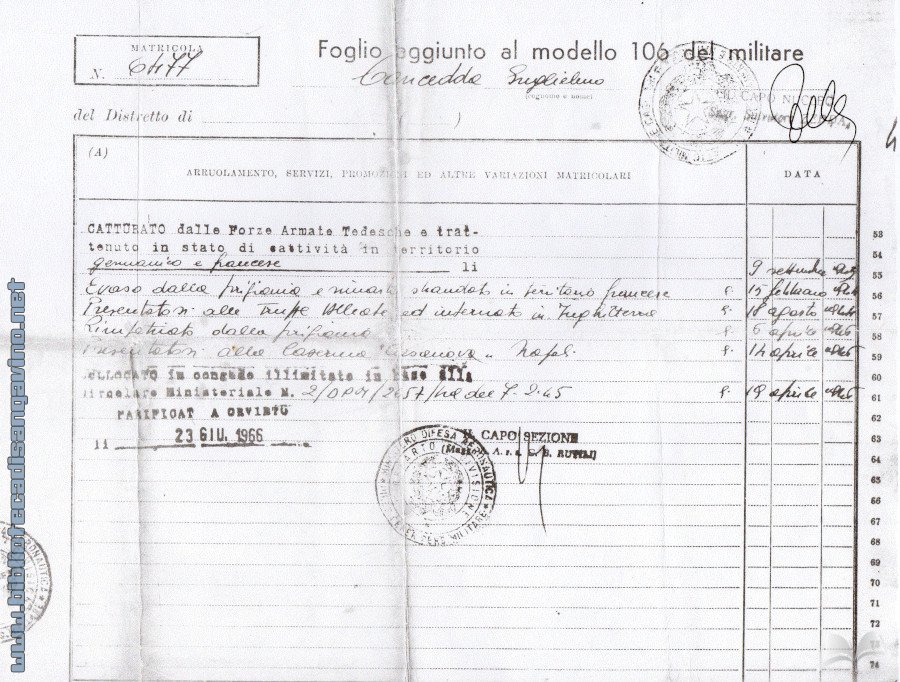 MATRICOLA
N. 6477
Foglio aggiunto al modello 106 del militare
Concedda Guglielmo
(cognome e nome)
IL CAPO
del Distretto di ( )
(A)
ARRUOLAMENTO, SERVIZI, PROMOZIONI ED ALTRE VARIAZIONI MATRICOLARI
DATA
CATTURATO dalle Forze Armate Tedesche e trat-
tenuto in stato di cattività in territorio
germanico e francese li 9 settembre
Evaso dalla prigionia e rimasto sbandato in territorio francese 15 febbraio
Presentatosi alle truppe Alleate ed internato in Inghilterra 18 agosto
Rimpatriato dalla prigionia 6 aprile
Presentatosi alla Caserma "Casanova" Napoli 14 aprile
COLLOCATO in congedo illimitato in base alla
Circolare Ministeriale N. del 7-2-45 19 aprile
PARIFICAT A ORVIETO
li 23 GIU. 1966
IL CAPO SEZIONE
MINISTERO DIFESA AERONAUTICA
53
54
55
56
57
58
59
60
61
62
63
64
65
66
67
68
69
70
71
72
73
74
www.bibliotecadisangavino.net